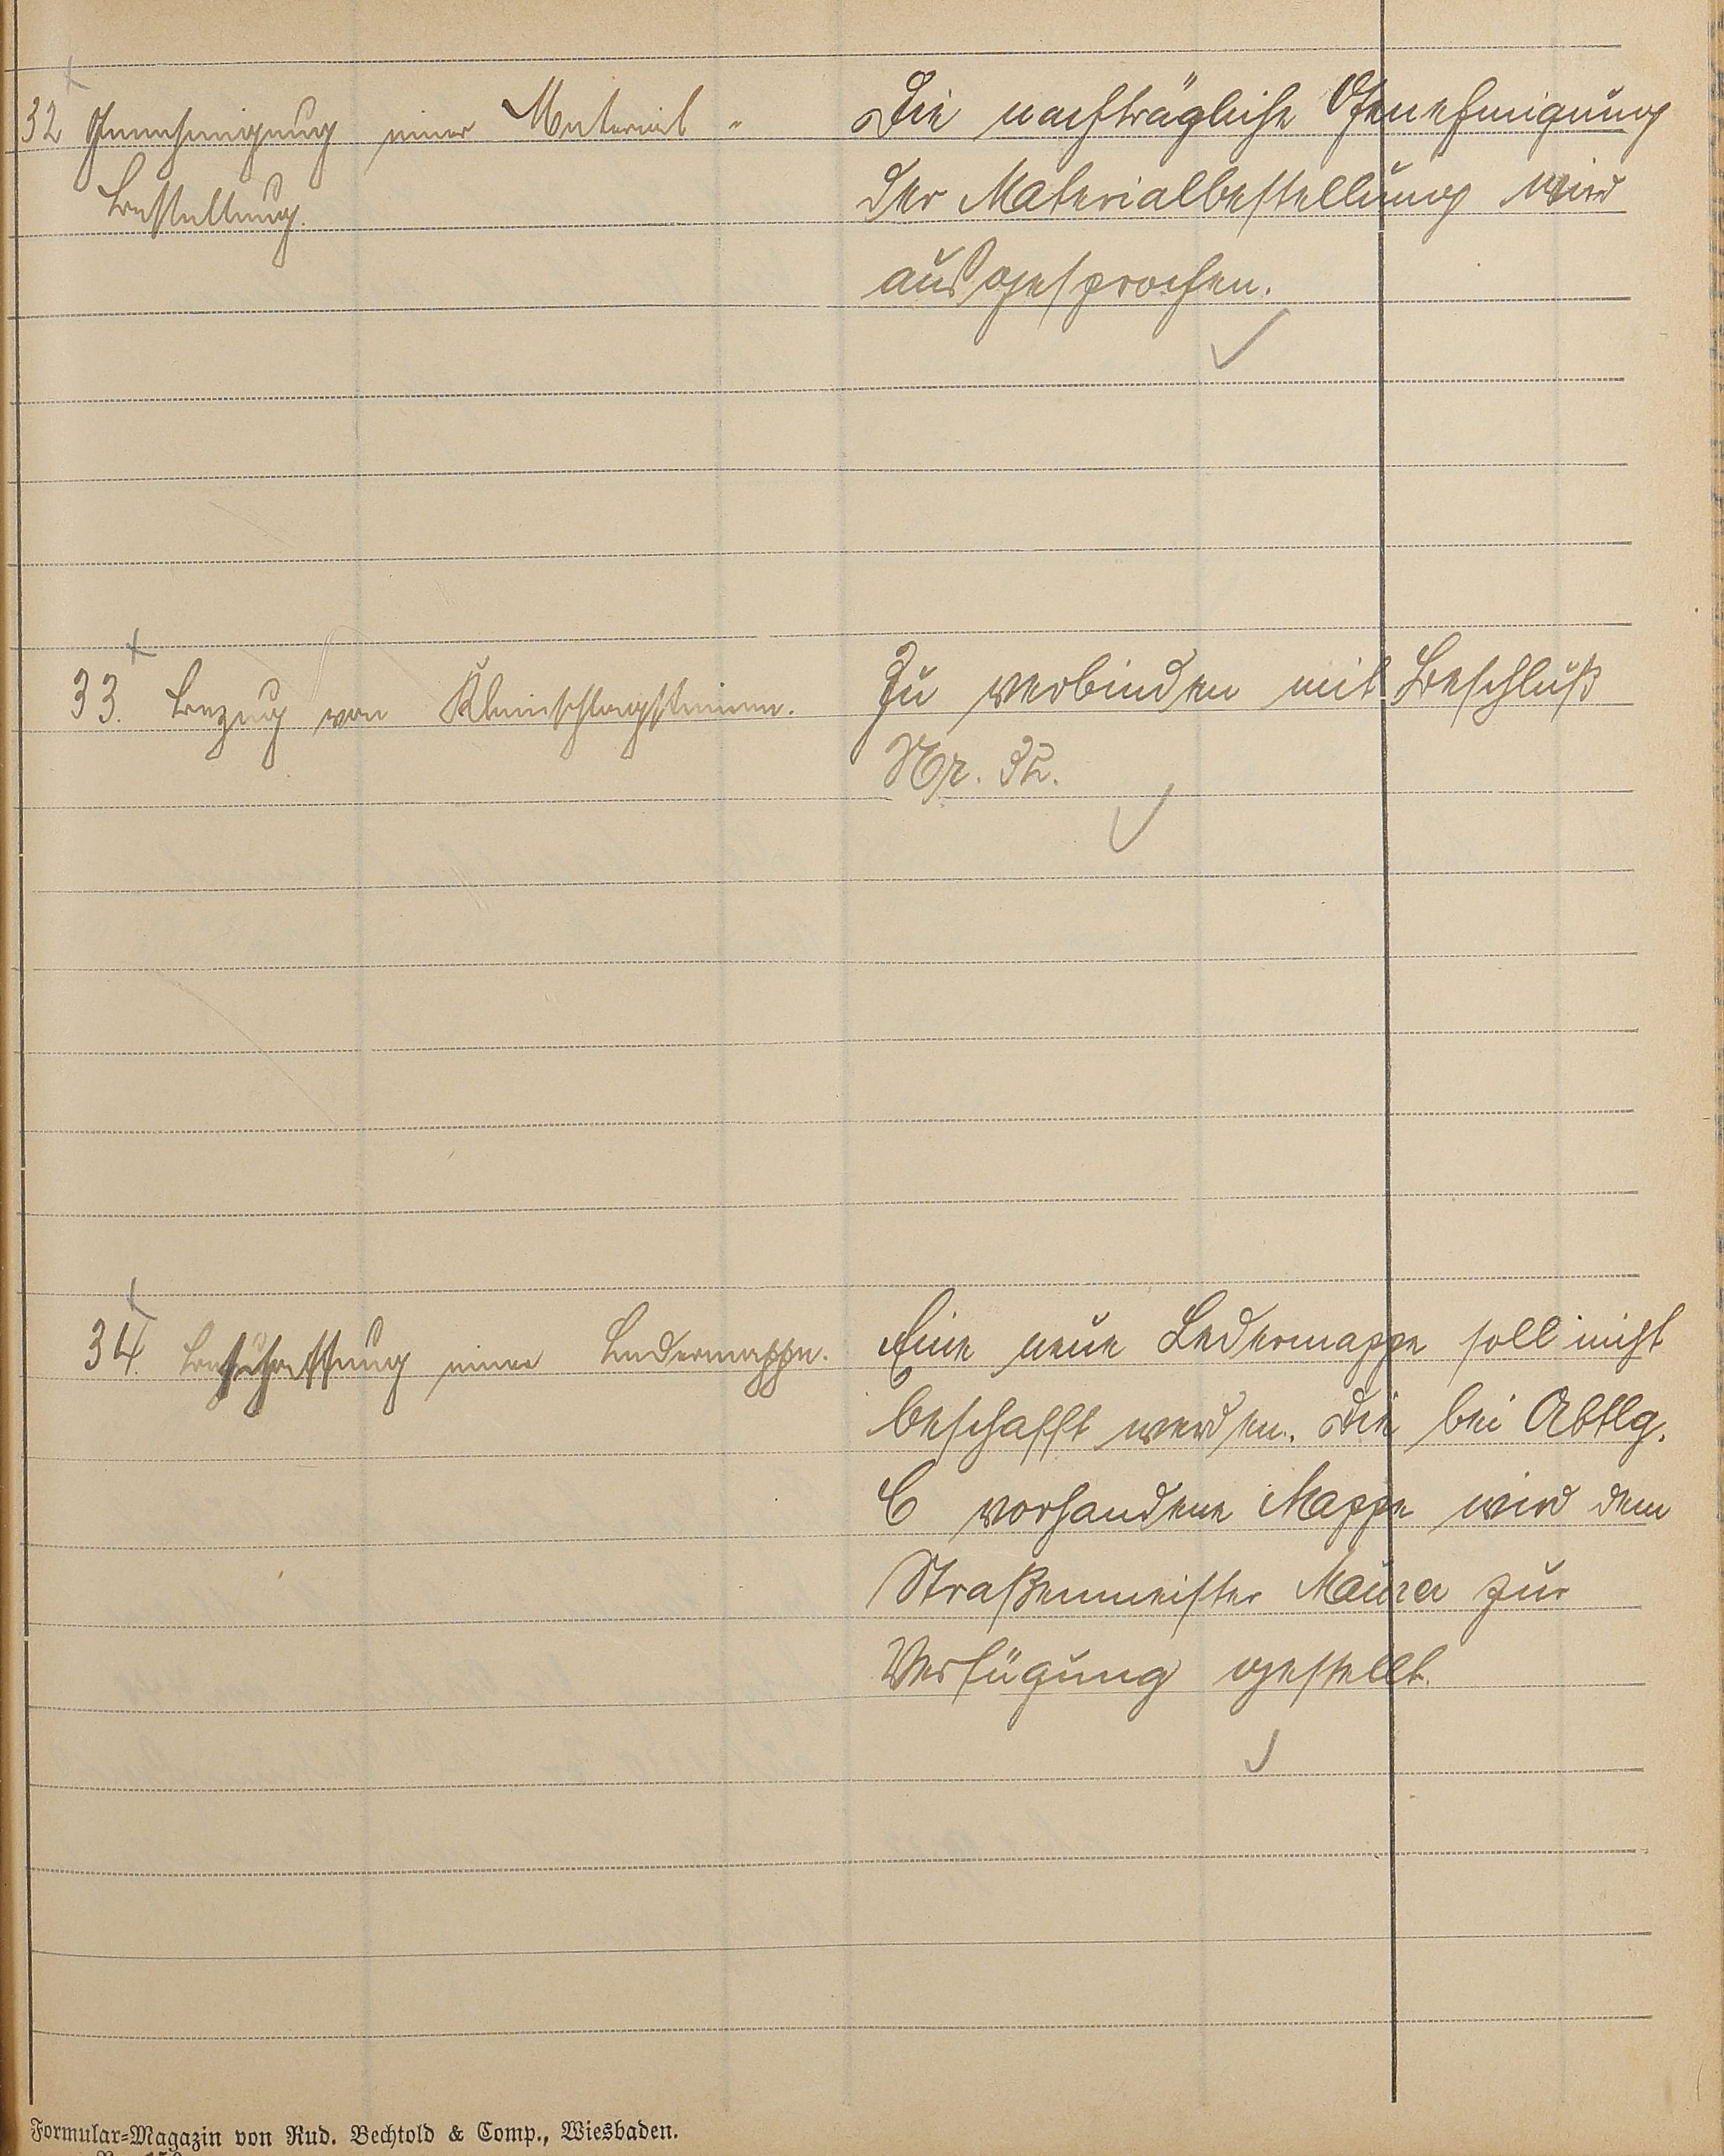 32 Genehmigung einer Material-
Bestellung.
Die nachträgliche Genehmigung
der Materialbestellung wird
ausgesprochen.
33. Bezug von Kleinschlagsteinen.
Zu verbinden mit Beschluß
Nr. 32.
34. Beschaffung einer Ledermappe.
Eine neue Ledermappe soll nicht
beschafft werden. Die bei Abtlg.
C vorhandene Mappe wird dem
Straßenmeister Maurer zur
Verfügung gestellt.
Formular-Magazin von Rud. Bechtold & Comp., Wiesbaden.